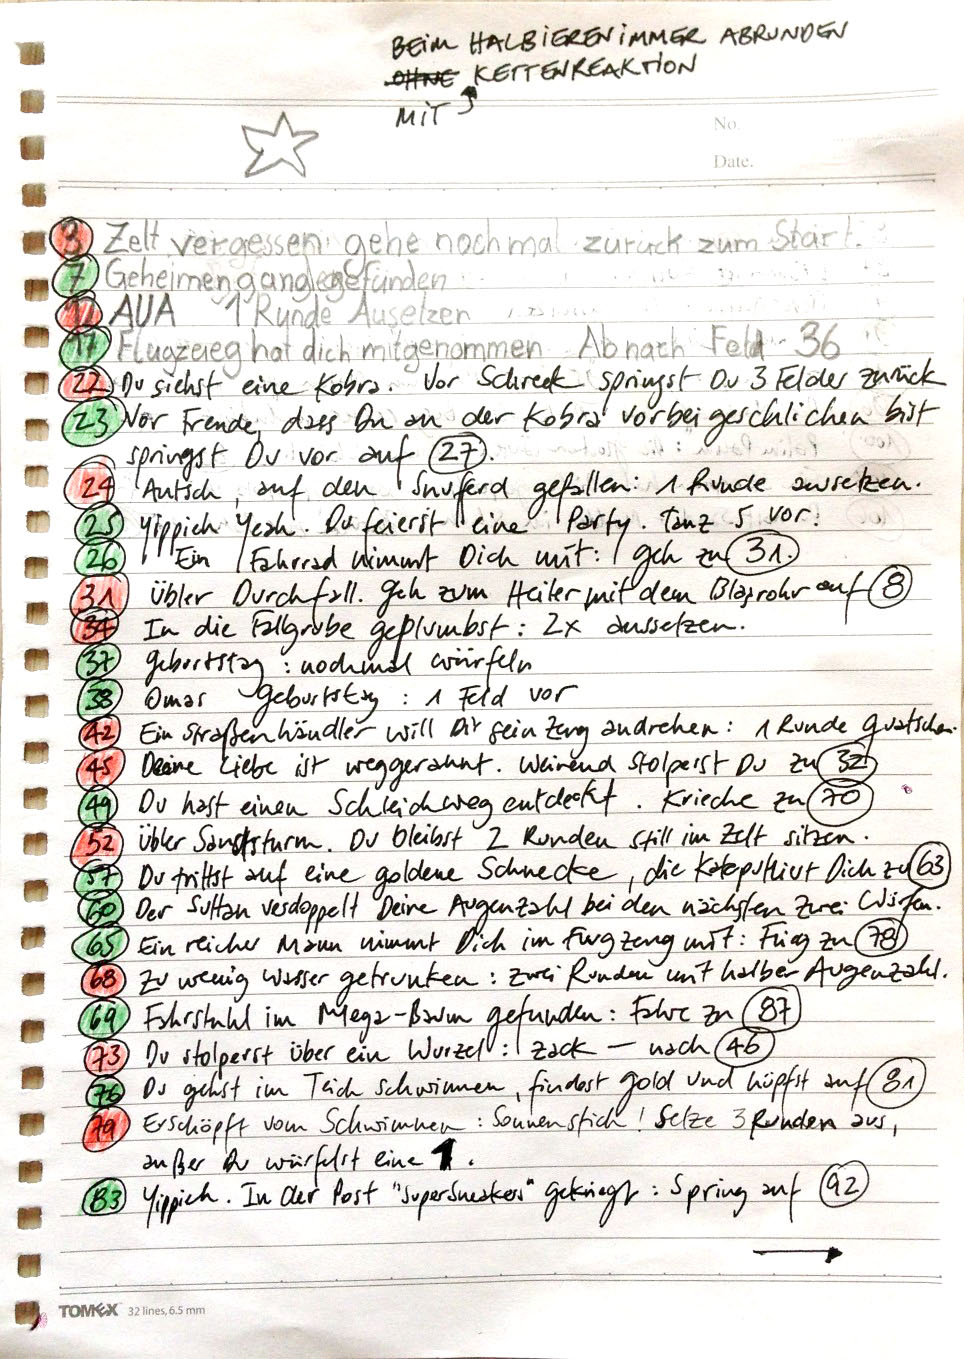 BEIM HALBIEREN IMMER ABRUNDEN
OHNE KETTENREAKTION
MIT
No.
Date.
3 Zelt vergessen: gehe nochmal zurück zum Start.
7 Geheimengang gefunden
11 AUA 1 Runde Ausetzen
17 Flugzeug hat dich mitgenommen Ab nach Feld 36
22 Du siehst eine Kobra. Vor Schreck springst Du 3 Felder zurück
23 Vor Freude, dass Du an der Kobra vorbeigeschlichen bist
springst Du vor auf 27.
24 Autsch, auf den gefallen: 1 Runde aussetzen.
25 Yippieh Yeah. Du feierst eine Party. Tanz 5 vor!
26 Ein Fahrrad nimmt Dich mit: geh zu 31.
31 Übler Durchfall. Geh zum Heiler mit dem Blasrohr auf 8
34 In die Fallgrube geplumbst: 2x aussetzen.
37 Geburtstag: nochmal würfeln
38 Omas Geburtstag: 1 Feld vor
42 Ein Straßenhändler will Dir sein Zeug andrehen: 1 Runde quatschen.
45 Deine Liebe ist weggerannt. Weinend stolperst Du zu 32
49 Du hast einen Schleichweg entdeckt. Krieche zu 70
52 Übler Sandsturm. Du bleibst 2 Runden still im Zelt sitzen.
57 Du trittst auf eine goldene Schnecke, die Katepultiert Dich zu 63
60 Der Sultan verdoppelt Deine Augenzahl bei den nächsten zwei Würfen.
65 Ein reicher Mann nimmt Dich im Flugzeug mit: Flieg zu 78
68 Zu wenig Wasser getrunken: zwei Runden mit halber Augenzahl.
69 Fahrstuhl im Mega-Baum gefunden: Fahre zu 87
73 Du stolperst über ein Wurzel: zack – nach 46
76 Du gehst im Teich schwimmen, findest Gold und hüpfst auf 81
79 Erschöpft vom Schwimmen: Sonnenstich! Setze 3 Runden aus,
außer Du würfelst eine 1.
83 Yippieh. In der Post "Supersneakers" gekriegt: Spring auf 92
TOMEX 32 lines, 6.5 mm